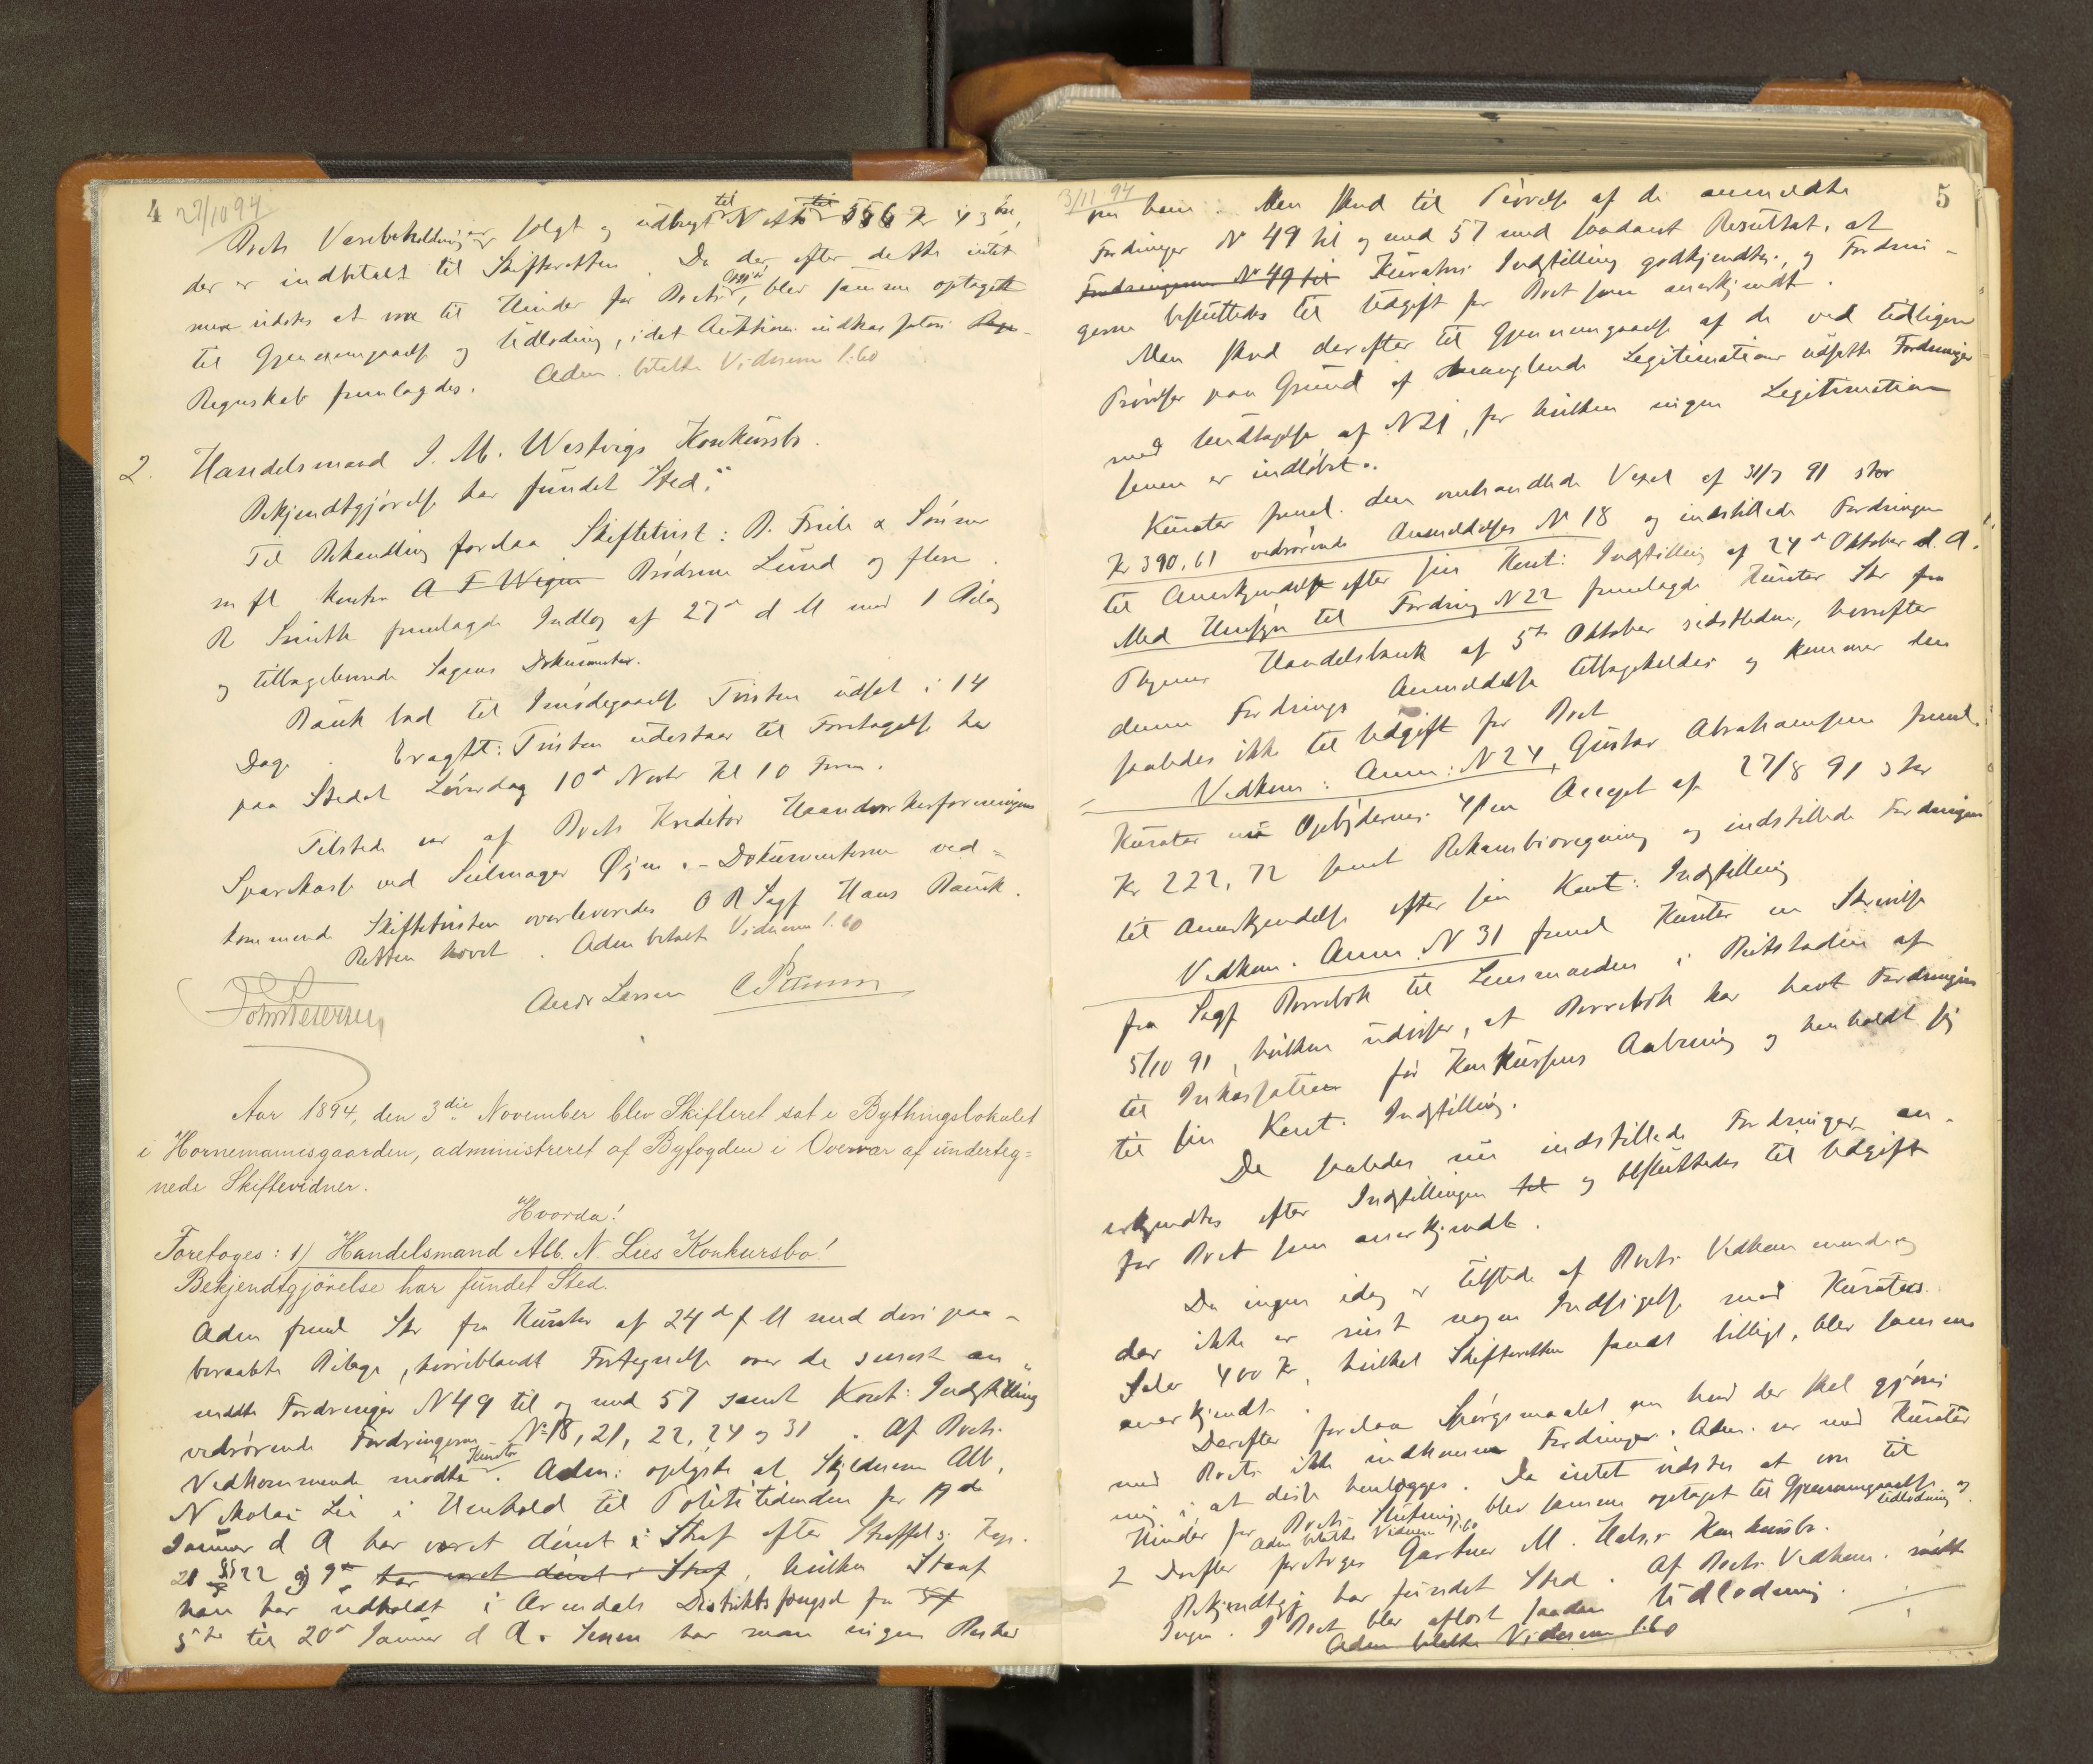 4 27/10 94
Boets Varebeholdning er solgt og udbragt til Netto 556 Kr 43 øre,
der er indbetalt til Skifteretten. Da der efter dette intet
mere vides at være til Hinder for Boets Opgjør, blev samme optaget
til Gjennemgaaelse og Udlodning, idet Auktions indkassations
Regnskab fremlagdes. Adm. betalte Vidnerne 1.60
2. Handelsmand J. M. Westvigs Konkursbo.
Bekjendtgjørelse har fundet Sted.
Til Behandling forelaa Skiftetvist: B. Friele & Sønner
m fl kontra A F Wigen Brødrene Lund og flere.
R Smith fremlagde Indlæg af 27de d M med 1 Bilag
og tilbageleverede Sagens Dokumenter.
Bauck bad til Imødegaaelse Tvisten udsat i 14
Dage. Eragtt: Tvisten udestaar til Foretagelse her
paa Stedet Løverdag 10de Novbr Kl 10 Form.
Tilstede var af Boets Kreditor Haandværkerforeningens
Sparekasse ved Seilmager Øjen. - Dokumenterne ved=
kommende Skiftetvisten overleveredes O R Sagf Hans Bauck.
Retten hævet. Adm betalte Vidnerne 1.60
Andr Larsen C Petersen
Joh Petersen
Aar 1894, den 3die November blev Skifteret sat i Bythingslokalet
i Hornemannsgaarden, administreret af Byfogden i Overvær af underteg=
nede Skiftevidner.
Hvorda!
Foretoges: 1) Handelsmand Alb. N. Lies Konkursbo!
Bekjendtgjörelse har fundet Sted.
Adm freml Skr fra Kurator af 24de f M med deri paa-
beraabte Bilage, hvoriblandt Fortegnelse over de senest an=
meldte Fordringer N 49 til og med 57 samt Kont: Indstilling
vedrørende Fordringerne No 18, 21, 22, 24 og 31. Af Boets
Vedkommende mødte Kurator. Adm: oplyste at Skyldneren Alb.
Nikolai Lie i Henhold til Politititidenden for
Januar d A har været dømt i Straf efter Straffels: Kap.
21 §§ 22 og 9 har været dømt i Straf, hvilken Straf
han har udholdt i Arendals Distriktsfængsel fra
5te til 20de Januar d A. Senere har man ingen Besked
3/11 94 5
om ham. Man skred til Prøvelse af de anmeldte
Fordringer No 49 til og med 57 med saadant Resultat, at
Fordringerne No 49 til Kurators Indstilling godkjendtes, og Fordrin-
gerne besluttedes til Udgift for Boet som anerkjendt.
Man skred derefter til Gjennemgaaelse af de ved tidligere
Prøvelser paa Grund af manglende Legitimationer udsatte Fordringer
med Undtagelse af N 21, for hvilken ingen Legitimation
senere er indløbet.
Kurator freml. den omhandlede Vexel af 31/7 91 stor
Kr 390,61 vedrørende Anmeldelse No 18 og indstillede Fordringen
til Anerkjendelse efter sin Kont: Indstilling af 24de Oktober d. A.
Med Hensyn til Fordring N 22 fremlagde Kurator Skr fra
Handelsbank af 5te Oktober sidstleden, hvorefter
denne Fordrings Anmeldelse tilbageholdes og kommer den
saaledes ikke til Udgift for Boet
Vedkom: Anm: N 24, Gustav Abrahamsen freml.
Kurator nu Opbyderens Accept af 27/8 91 stor
Kr 222,72 samt Rekambioregning og indstillede Fordringen
til Anerkjendelse efter sin Kont: Indstilling
Vedkom. Anm. N 31 freml Kurator en Skrivelse
fra Sagf Borrebæk til Lensmanden i Botstaden af
5/10 91, hvilken udviser, at Borrebæk har havt Fordringen
til Inkassation før Konkursens Aabning og henholdt sig
til sin Kont. Indstilling.
De saaledes nu indstillede Fordringer an-
erkjendtes efter Indstillingen til og besluttedes til Udgift
for Boet som anerkjendt.
Da ingen idag er tilstede af Boets Vedkommende og
der ikke er reist nogen Indsigelse mod Kurators
Salær 400 Kr, hvilket Skifteretten fandt billigt, blev samme
anerkjendt.
Derefter forelaa Spørgsmaalet om hvad der skal gjøres
med Boets ikke indkomne Fordringer. Adm. var med Kurator
enig i at disse henlægges. Da intet vides at være til
Hinder for Boets Slutning, blev samme optaget til Gjennemgaaelse og Udlodning.
Adm betalte Vidnerne 1.60
2 Derefter foretoges Gartner M. Halses Konkursbo.
Bekjendtgj har fundet Sted. Af Boets Vedkom. mødte
Ingen. I Boet blev aflæst saadan Udlodning
Adm betalte Vidnerne 1.60